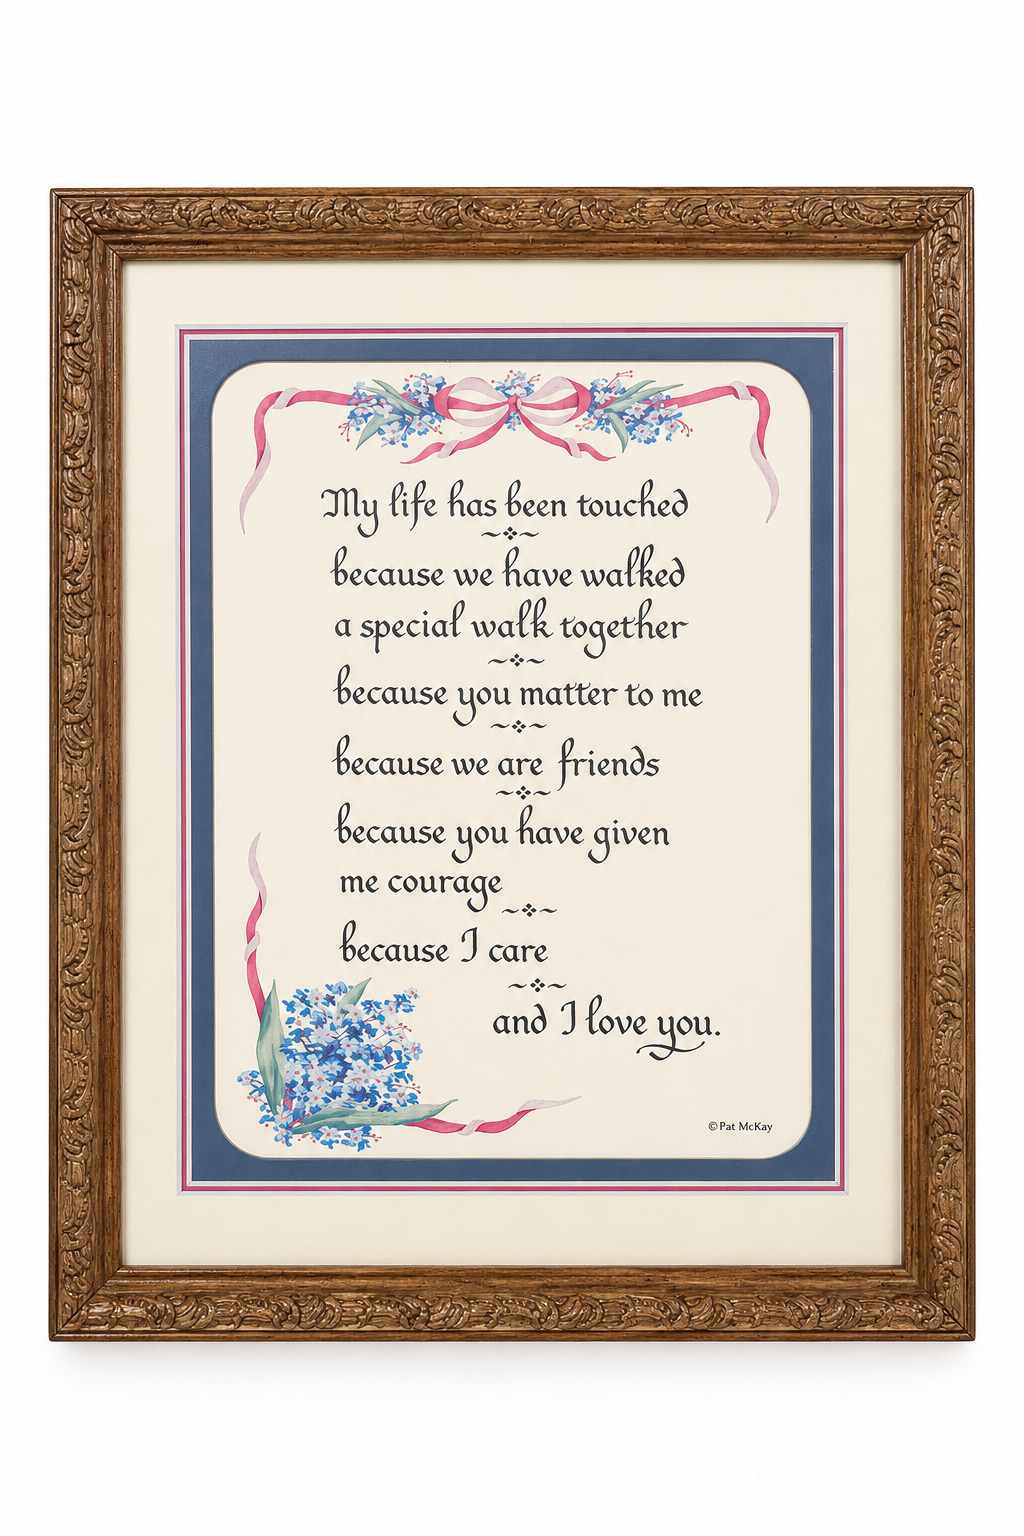 My life has been touched
because we have walked
a special walk together
because you matter to me
because we are friends
because you have given
me courage
because I care
and I love you.
©Pat McKay